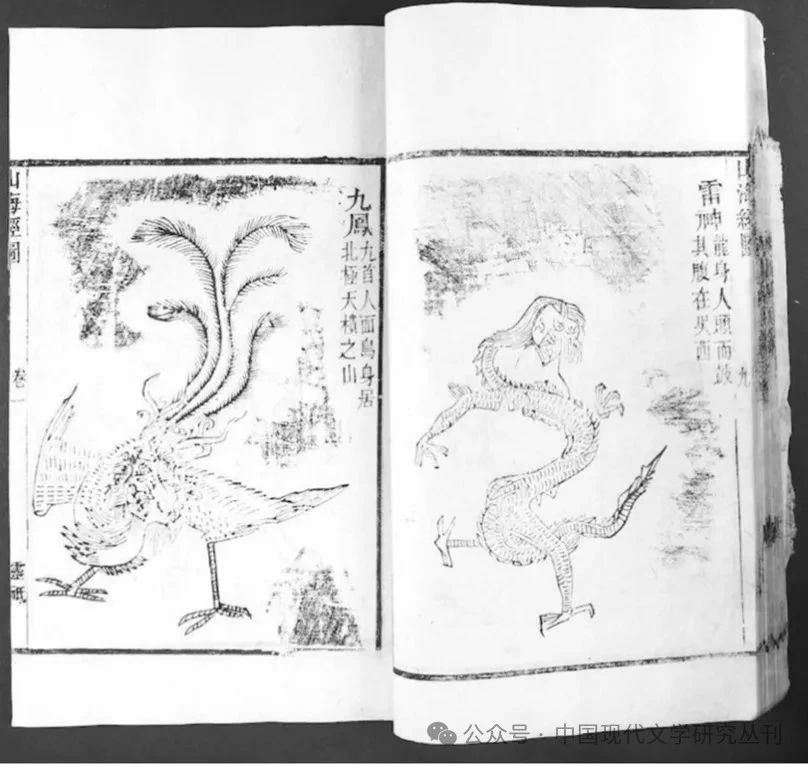 雷神龍身人頭而鼓
其腹在吴西
九
九鳳九首人面鳥身居
北極天櫃之山
山海經圖
卷一
靈祇
公众号·中国现代文学研究丛刊